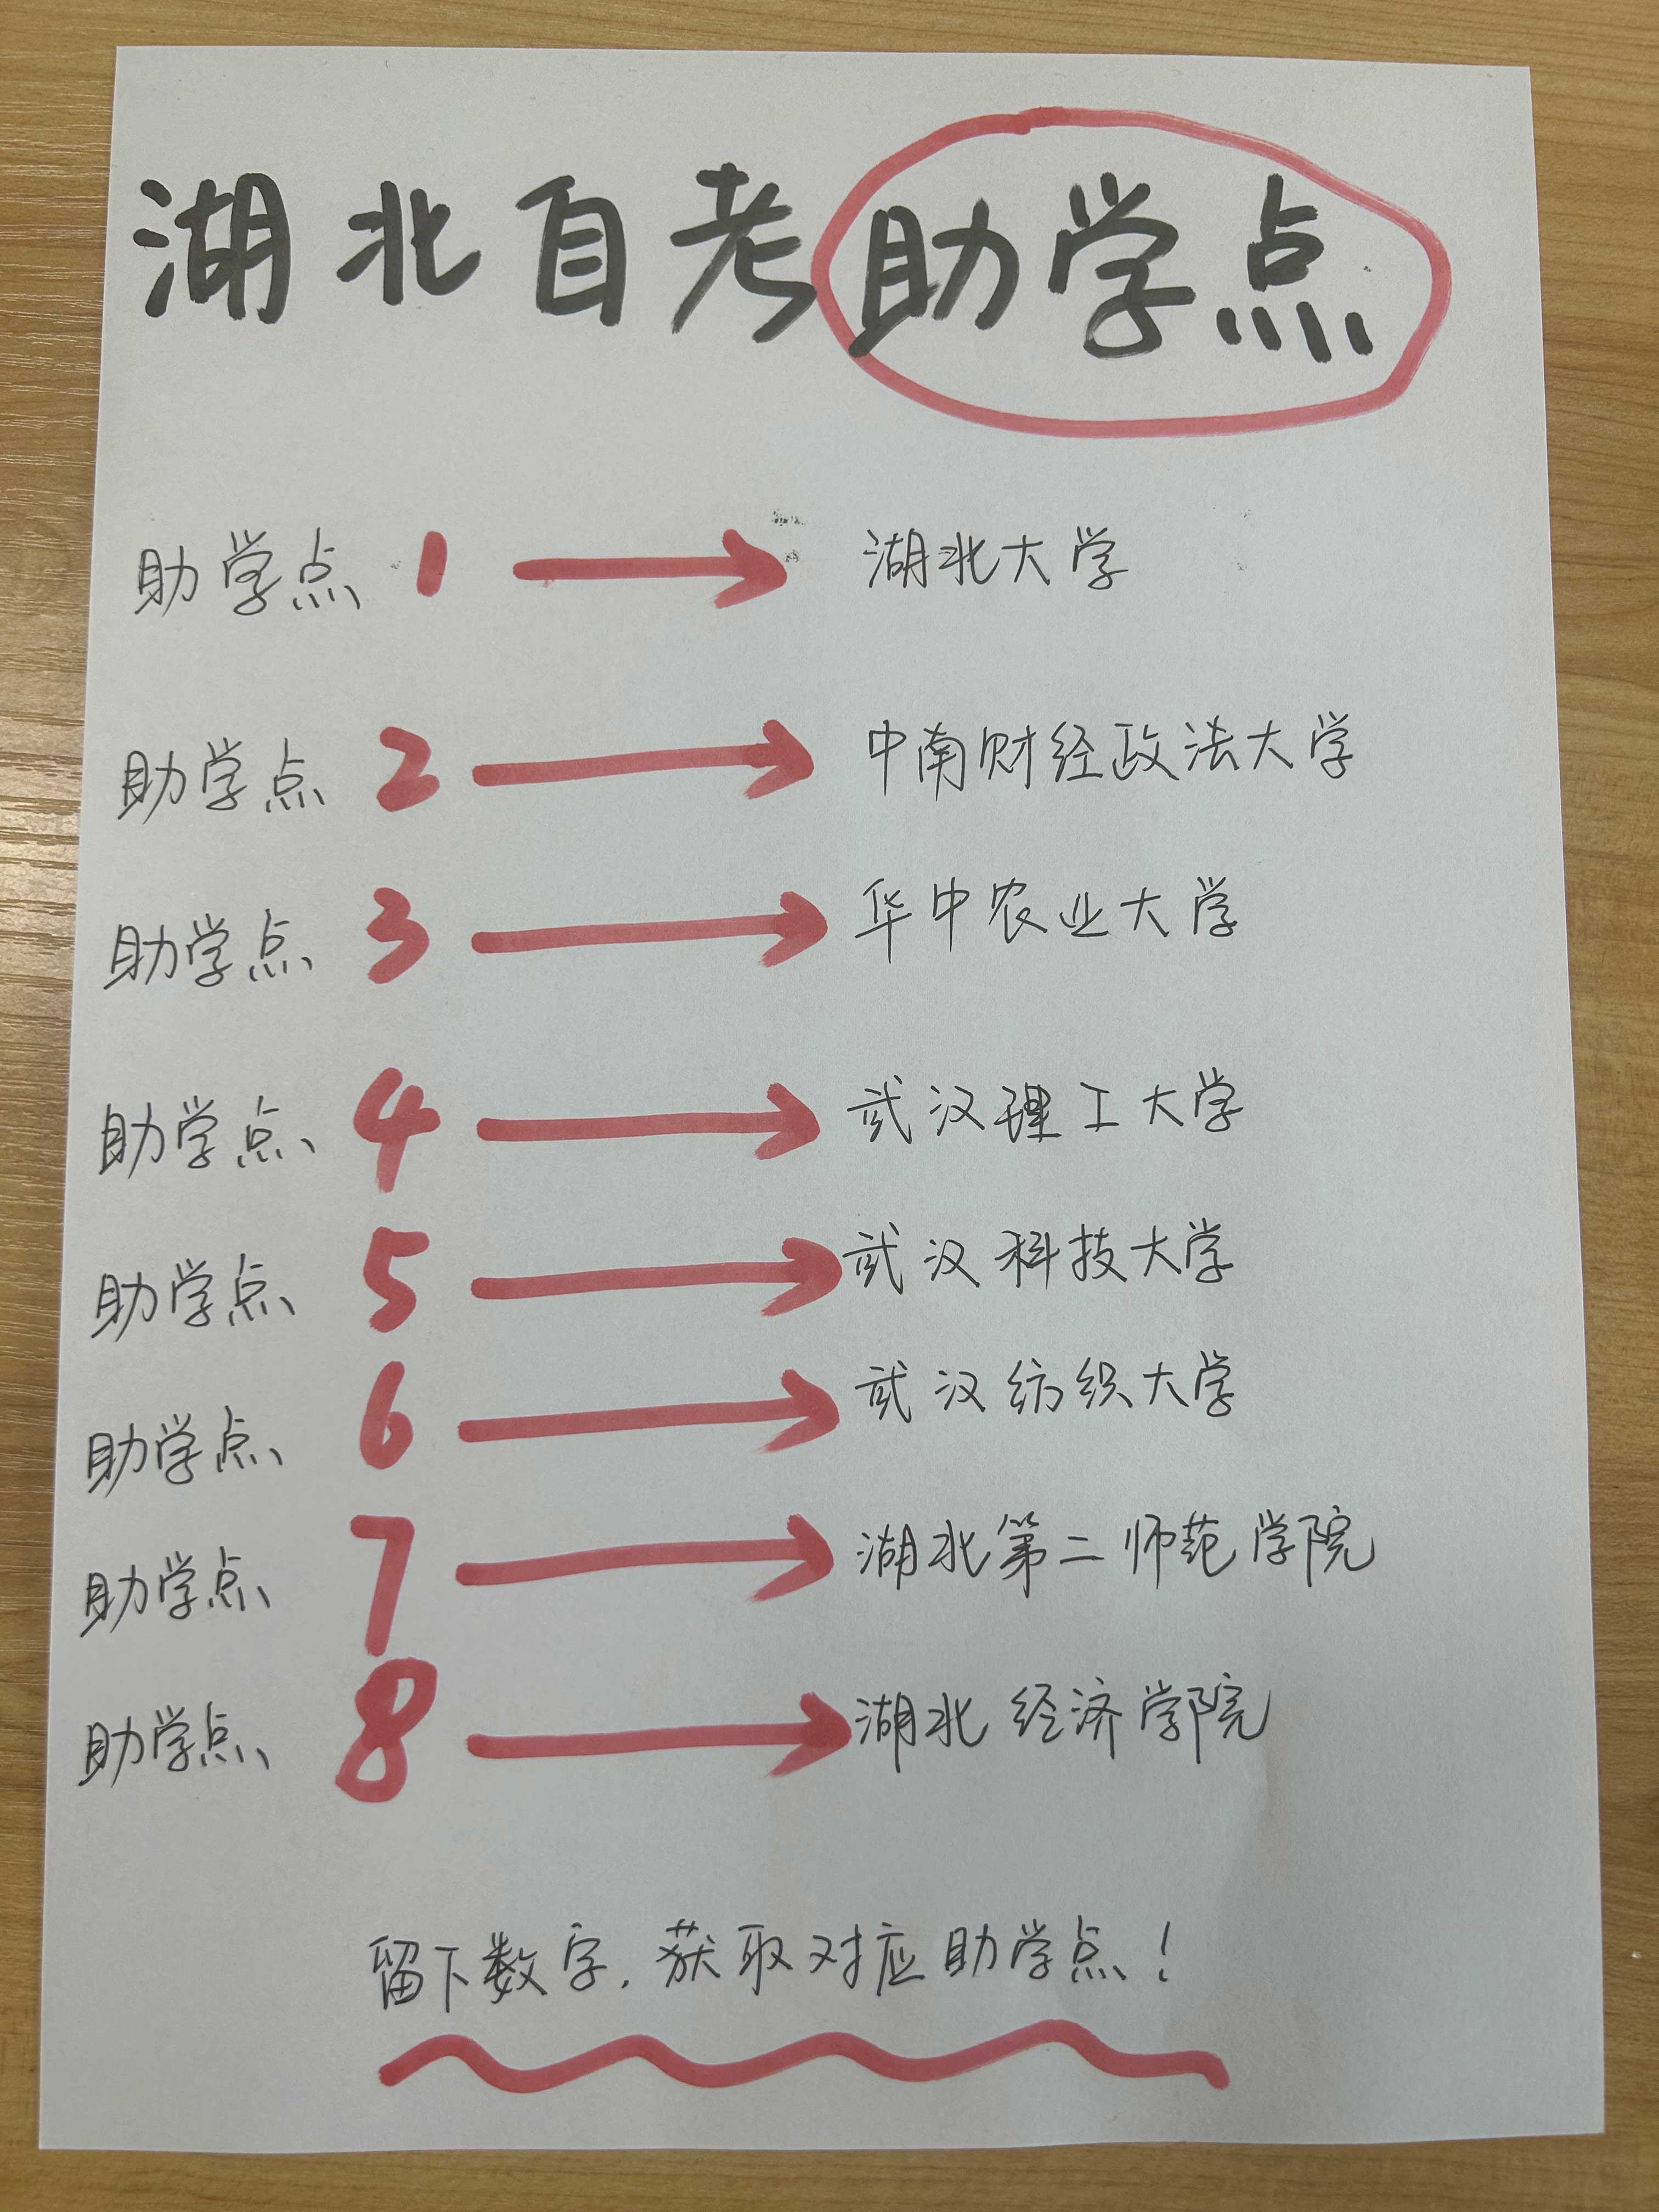 湖北自考助学点
助学点 1 → 湖北大学
助学点 2 → 中南财经政法大学
助学点 3 → 华中农业大学
助学点 4 → 武汉理工大学
助学点 5 → 武汉科技大学
助学点 6 → 武汉纺织大学
助学点 7 → 湖北第二师范学院
助学点 8 → 湖北经济学院
留下数字,获取对应助学点!